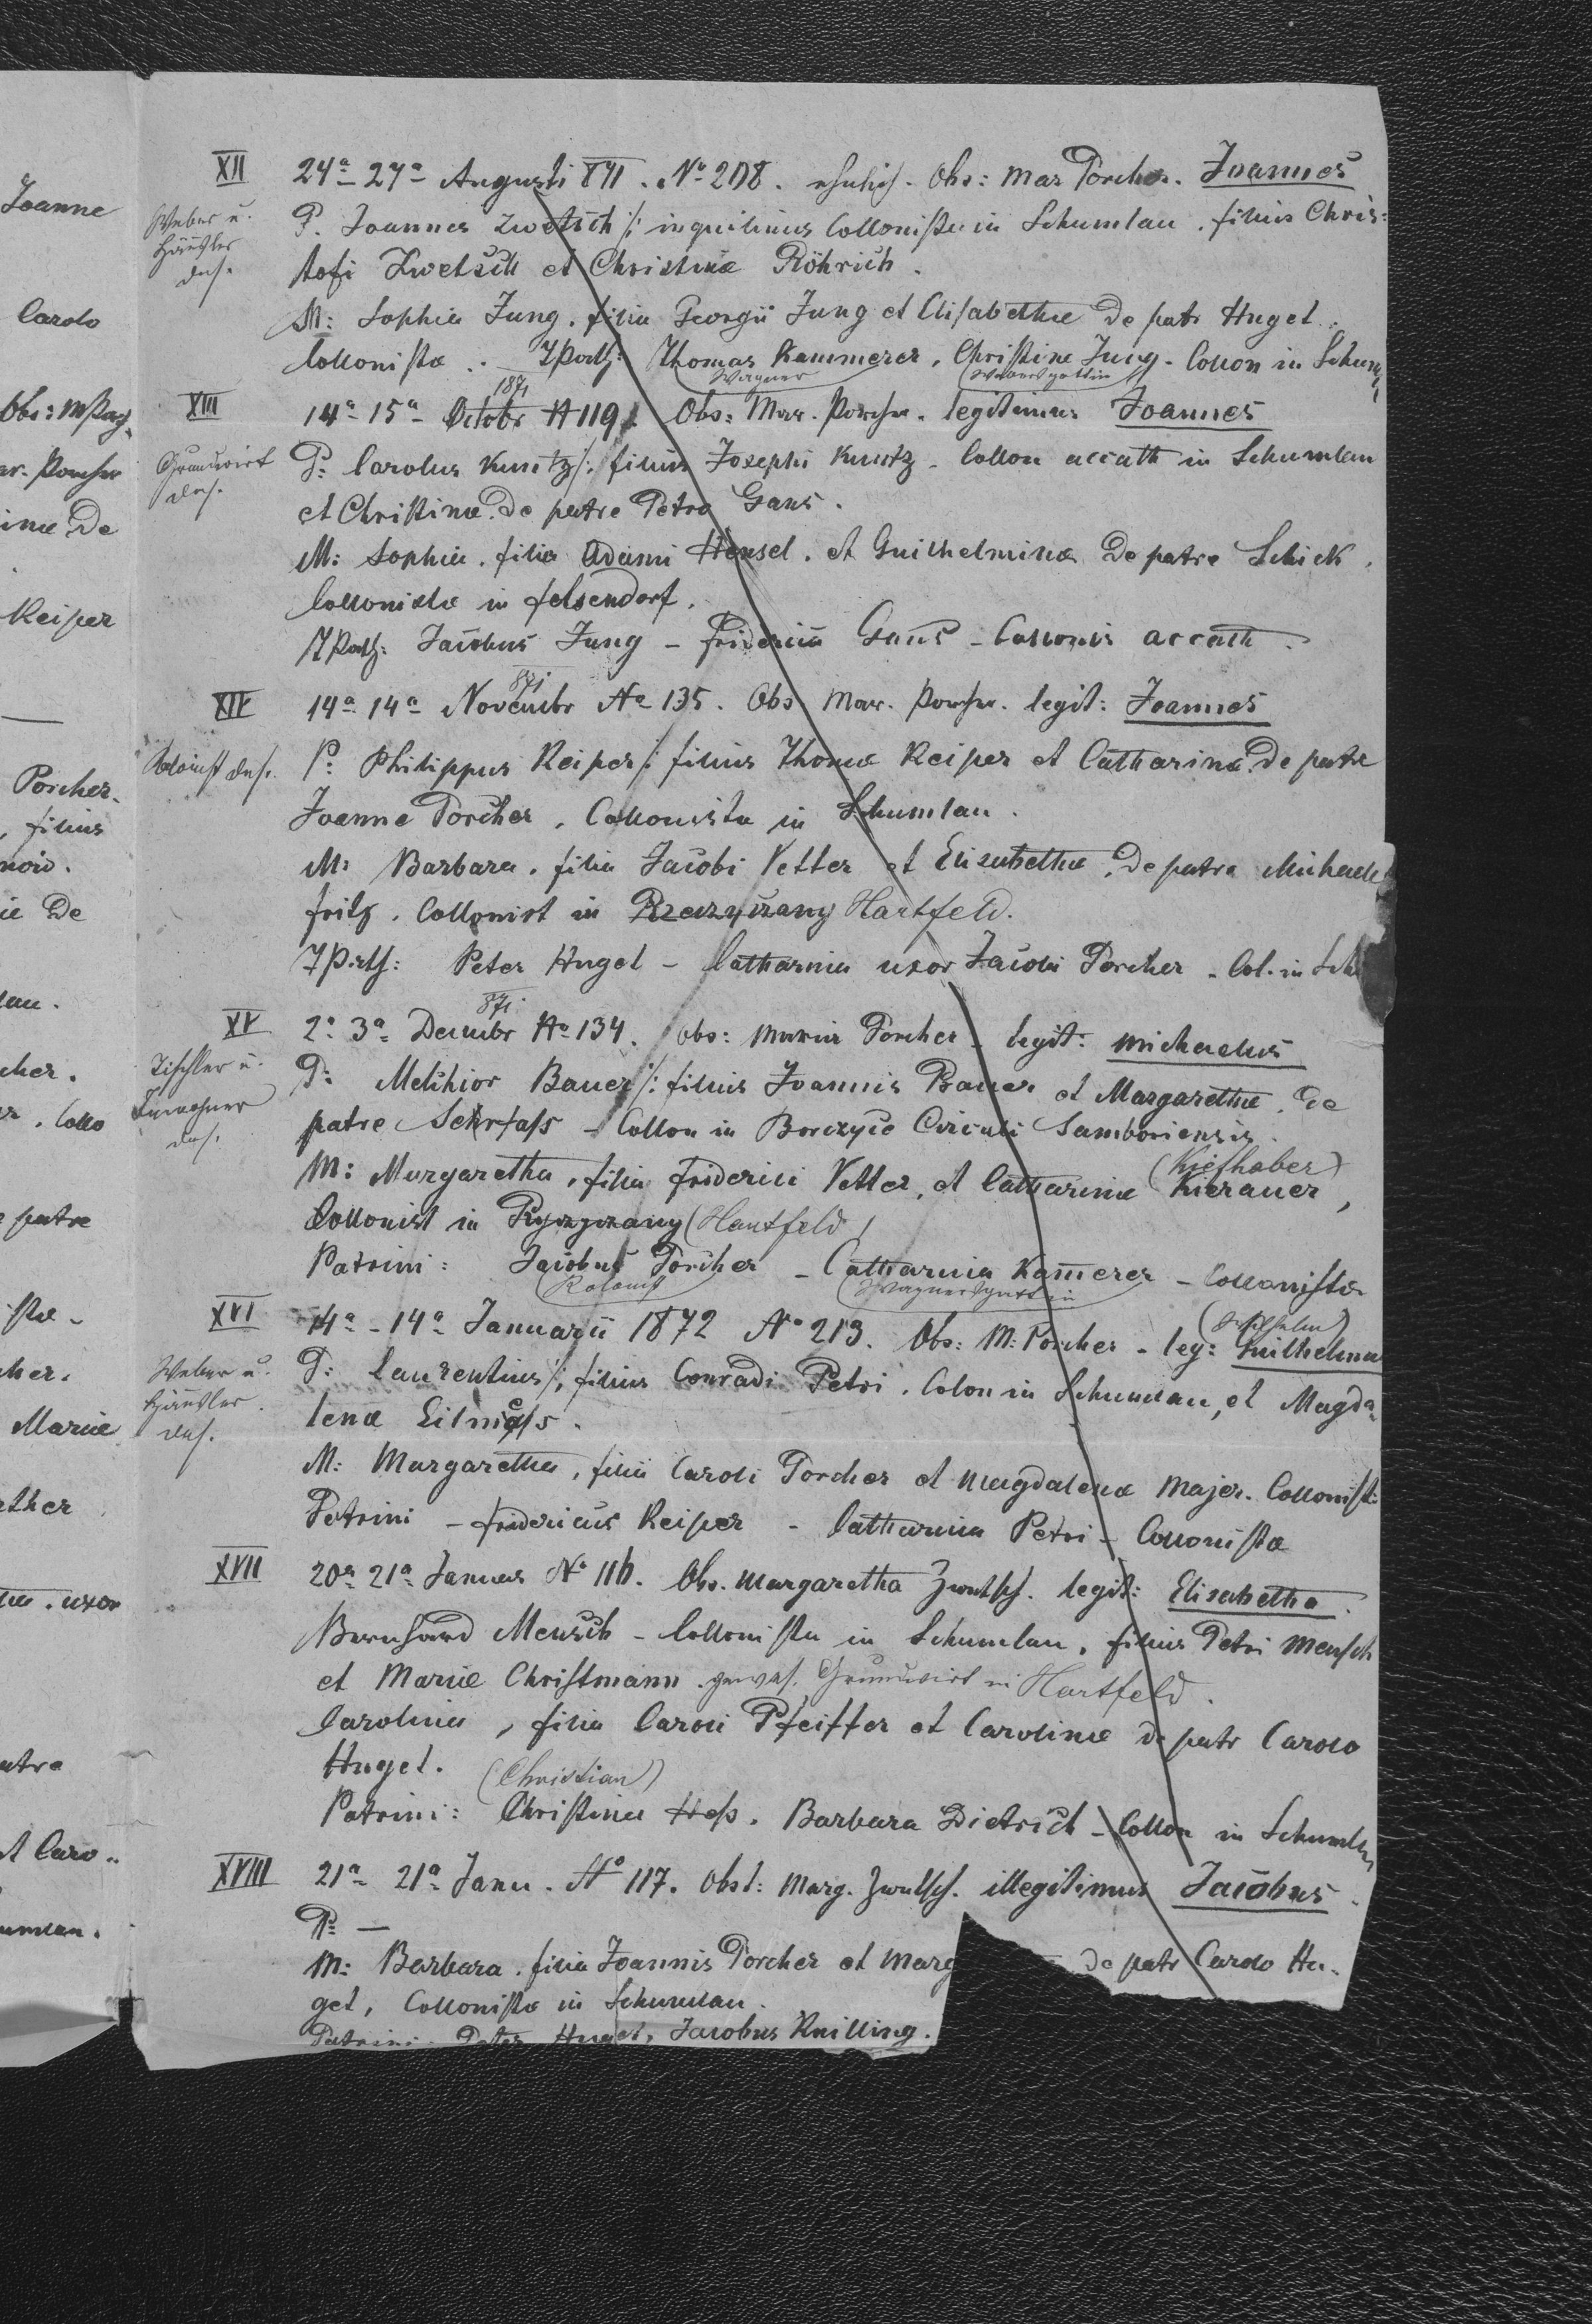 Joanne
Carolo
Obs:
ar. Porcher
inae De
Keiper
Porcher.
, filius
ie De
lau.
cher.
. Collo
patre
cher.
Mariae
ether
uxor
atre
et Caro..
umlau.
XII 24a - 27a Augusti 871. No 208. ehelich. Obs: Mar Porcher. Joannes
Weber u.
Häusler
das.
P. Joannes Zwetsch /: inquilinus Collonista in Schumlau. filius Chris=
tofi Zwetsch et Christinae Röhrich.
M: Sophia Jung, filia Georgii Jung et Elisabethae De patr Huget.
Collonistae. Path: Thomas Kammerer, Christine Jung - Collon in Schum
Wagner Webersgattin
XIII 14a 15a Octobr 1871 No 119. Obs: Mar. Porcher. legitimus Joannes
Grundwirt
das.
P: Carolus Kuntz /: filius Josephi Kuntz - Collon accath in Schumlau
et Christinae De patre Petro Gans.
M: Sophia, filia Adami Hensel, et Guilhelminae De patre Schick,
Collonistae in Felsendorf.
Path: Jacobus Jung - Fridericia Gans - Collonis accath.
XIV 14a 14a Novembr 871 No 135. Obs Mar. Porcher. legit: Joannes
Kolonist das.
P: Philippus Keiper /: filius Thomae Keiper et Catharinae De patre
Joanne Porcher, Collonista in Schumlau.
M: Barbara, filia Jacobi Vetter et Elisabethae, De patre Michaele
Fritz, Collonist in Rzeczyczany Hartfeld.
Path: Peter Huget - Catharina uxor Jacobi Porcher - Col. in Sch
XV 2a 3a Decembr 871 No 134. Obs: Maria Porcher - legit: Michaelus
Tischler u.
Inwohner
das.
P: Melchior Bauer /: filius Joannis Bauer et Margarethae, De
patre Schrfass - Collon in Borczyce Circuli Samboriensis.
M: Margaretha, filia Friderici Vetter, et Catharinae Kierauer, (Kiefhaber)
Collonist in Ryczyczany (Hartfeld)
Patrini: Jacobus Porcher - Catharina Kamerer - Collonistae
Kolonist Wagnersgattin
XVI 14a - 14a Januarii 1872 No 213. Obs: M: Porcher - leg: Guilhelmus (Wilhelm)
Weber u.
Häusler
das.
P: Laurentius /: filius Conradi Petri, Colon in Schumlau, et Magda=
lenae Eilmess.
M: Margaretha, filia Caroli Porcher et Magdalenae Majer. Collonist:
Patrini - Fridericus Keiper - Catharina Petri - Collonistae
XVII 20a 21a Januar No 116. Obs. Margaretha Zwetsch. legit: Elisabetha.
Bernhard Mensch - Collonista in Schumlau, filius Petri Mensch
et Mariae Christmann gewes. Grundwirt in Hartfeld.
Carolina, filia Caroli Pfeiffer et Carolinae de patr Carolo
Huget.
(Christian)
Patrini: Christina Hess, Barbara Dietrich - Collon in Schumlau
XVIII 21a 21a Janu. No 117. Obst: Marg. Zwetsch. illegitimus Jacobus.
P: —
M: Barbara, filia Joannis Porcher et Marg de patr Carolo Hu-
get, Collonistae in Schumlau.
Patrini: Peter Huget, Jacobus Knilling.